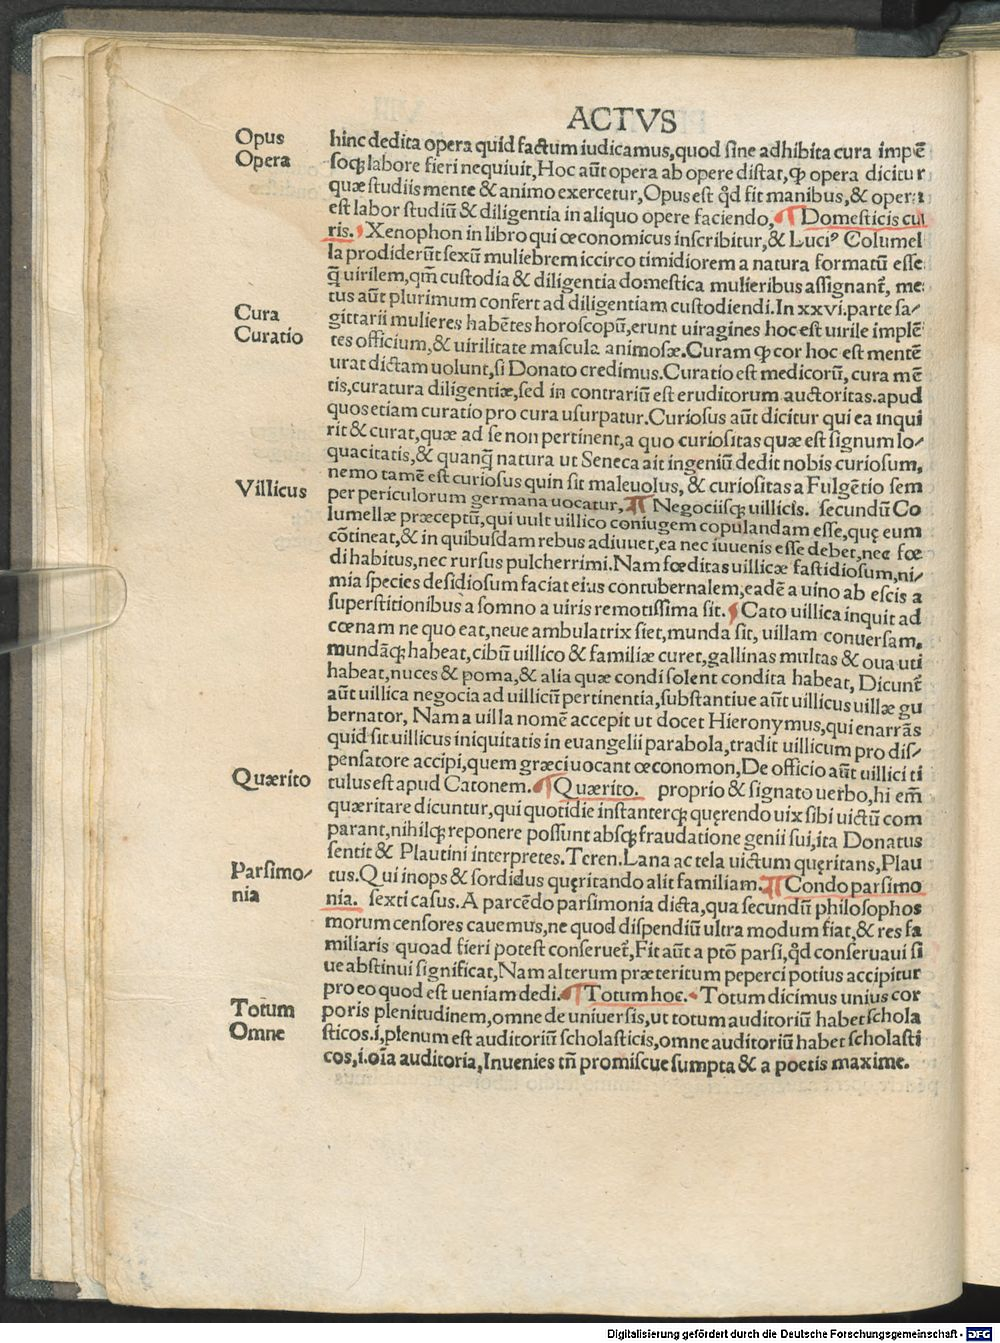 ACTVS
Opus
Opera
hinc dedita opera quid factum iudicamus, quod sine adhibita cura impē
soq; labore fieri nequiuit, Hoc aūt opera ab opere distat, ꝙ opera dicitur
quæ studiis mente & animo exercetur, Opus est q̊d fit manibus, & opera
est labor studiū & diligentia in aliquo opere faciendo, ¶ Domesticis cu
ris. Xenophon in libro qui œconomicus inscribitur, & Luciꝰ Columel
la prodiderūt sexū muliebrem iccirco timidiorem a natura formatū esse
q̄ uirilem, qm̄ custodia & diligentia domestica mulieribus assignant᷑, me
tus aūt plurimum confert ad diligentiam custodiendi. In xxvi. parte sa/
Cura
Curatio
gittarii mulieres habētes horoscopū, erunt uiragines hoc est uirile implē
tes officium, & uirilitate mascula animosæ. Curam ꝙ cor hoc est mentē
urat dictam uolunt, si Donato credimus. Curatio est medicorū, cura mē
tis, curatura diligentiæ, sed in contrariū est eruditorum auctoritas. apud
quos etiam curatio pro cura usurpatur. Curiosus aūt dicitur qui ea inqui
rit & curat, quæ ad se non pertinent, a quo curiositas quæ est signum lo/
quacitatis, & quanq̄ natura ut Seneca ait ingeniū dedit nobis curiosum,
nemo tamē est curiosus quin sit maleuolus, & curiositas a Fulgētio sem
Villicus
per periculorum germana uocatur, ¶ Negociisq; uillicis. secundū Co
lumellæ præceptū, qui uult uillico coniugem copulandam esse, quę eum
cōtineat, & in quibusdam rebus adiuuet, ea nec iuuenis esse debet, nec fœ
di habitus, nec rursus pulcherrimi. Nam fœditas uillicæ fastidiosum, ni/
mia species desidiosum faciat eius contubernalem, eadē a uino ab escis a
superstitionibus a somno a uiris remotissima sit. Cato uillica inquit ad
cœnam ne quo eat, neue ambulatrix siet, munda sit, uillam conuersam,
mundāq; habeat, cibū uillico & familiæ curet, gallinas multas & oua uti
habeat, nuces & poma, & alia quæ condi solent condita habeat, Dicunt᷑
aūt uillica negocia ad uillicū pertinentia, substantiue aūt uillicus uillæ gu
bernator, Nam a uilla nomē accepit ut docet Hieronymus, qui enarrās
quid sit uillicus iniquitatis in euangelii parabola, tradit uillicum pro dis/
pensatore accipi, quem græci uocant œconomon, De officio aūt uillici ti
Quærito
tulus est apud Catonem. ¶ Quærito. proprio & signato uerbo, hi em̄
quæritare dicuntur, qui quotidie instanterq; quęrendo uix sibi uictū com
parant, nihilq; reponere possunt absq; fraudatione genii sui, ita Donatus
sentit & Plautini interpretes. Teren. Lana ac tela uictum quęritans, Plau
Parsimo/
nia
tus. Qui inops & sordidus quęritando alit familiam. ¶ Condo parsimo
nia. sexti casus. A parcēdo parsimonia dicta, qua secundū philosophos
morum censores cauemus, ne quod dispendiū ultra modum fiat, & res fa
miliaris quoad fieri potest conseruet᷑, Fit aūt a ptō parsi, q̊d conseruaui si
ue abstinui significat, Nam alterum præteritum peperci potius accipitur
pro eo quod est ueniam dedi. ¶ Totum hoc. Totum dicimus unius cor
Totum
Omne
poris plenitudinem, omne de uniuersis, ut totum auditoriū habet schola
sticos. i, plenum est auditoriū scholasticis, omne auditoriū habet scholasti
cos, i. oīa auditoria, Inuenies tn̄ promiscue sumpta & a poetis maxime.
Digitalisierung gefördert durch die Deutsche Forschungsgemeinschaft - DFG